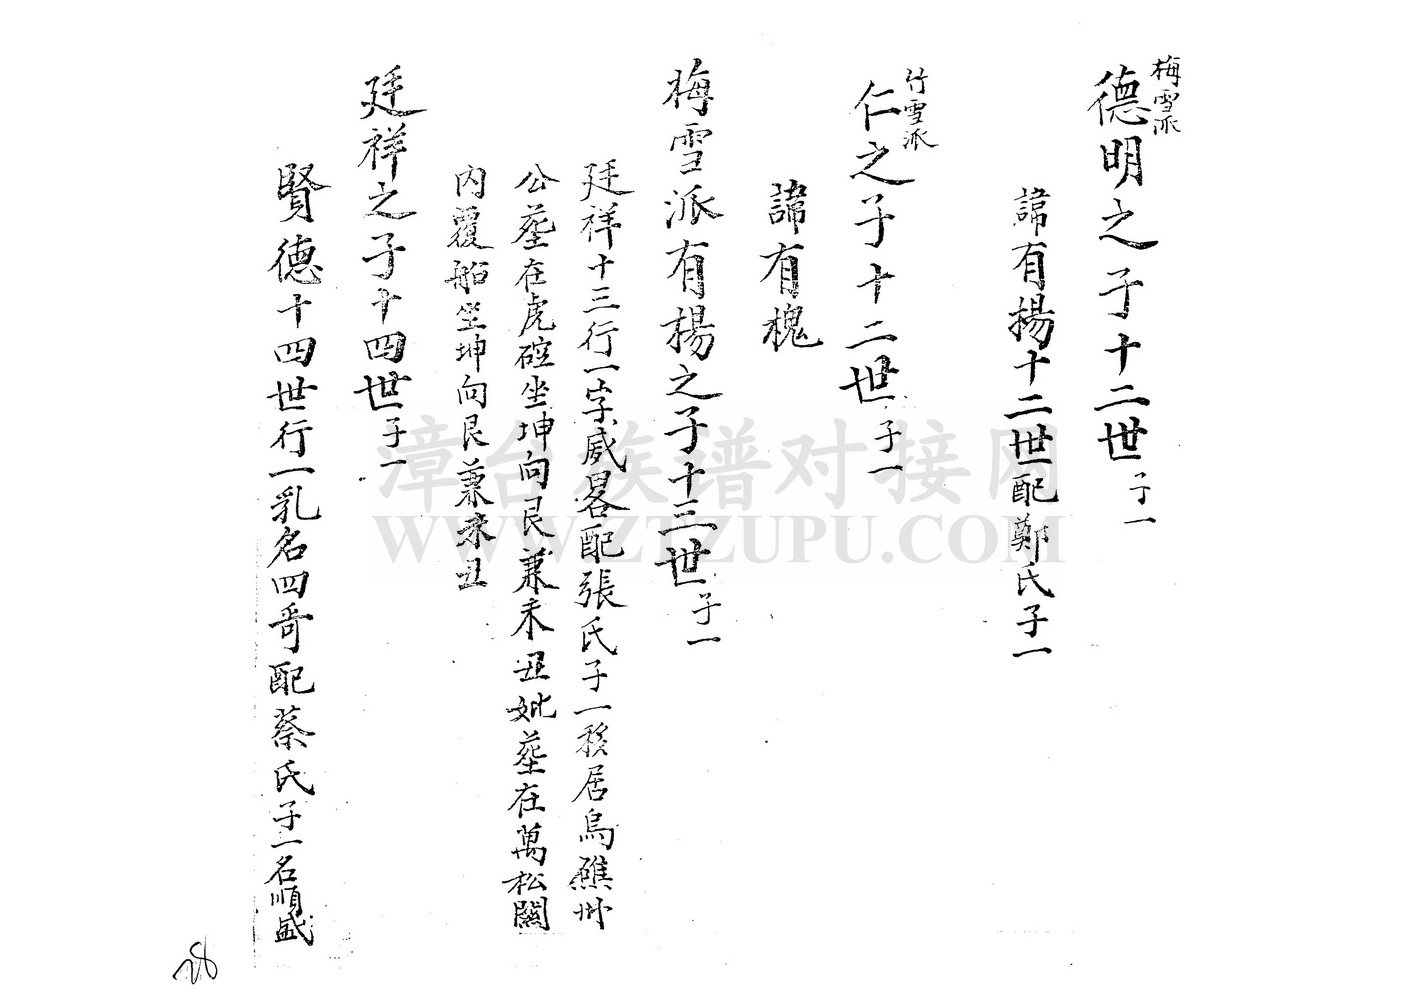 梅雪派
德明之子十二世子一
諱有楊十二世配鄭氏子一
竹雪派
仁之子十二世子一
諱有槐
梅雪派有楊之子十三世子一
廷祥十三行一字威畧配張氏子一移居烏礁州
公塟在虎硿坐坤向艮兼未丑妣塟在萬松關
内覆船坐坤向艮兼未丑
廷祥之子十四世子一
賢德十四世行一乳名四哥配蔡氏子一名順盛
28
漳台族谱对接网
WWW.ZTZUPU.COM